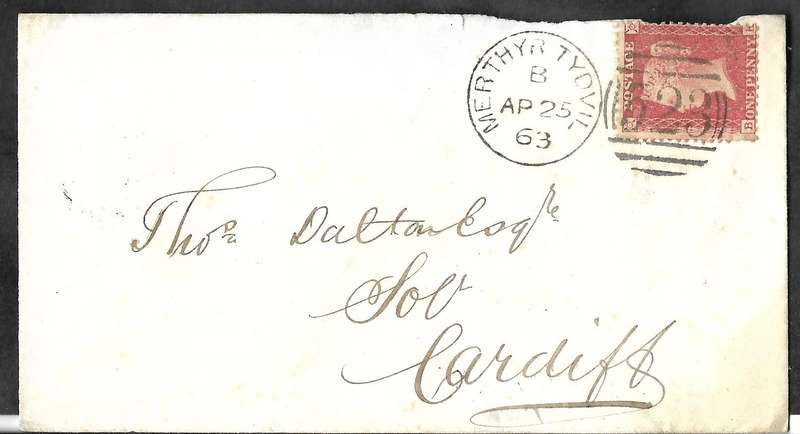 MERTHYR TYDVIL
B
AP 25
63
POSTAGE
ONE PENNY
523
Thos. Dalton Esqre
Solr
Cardiff